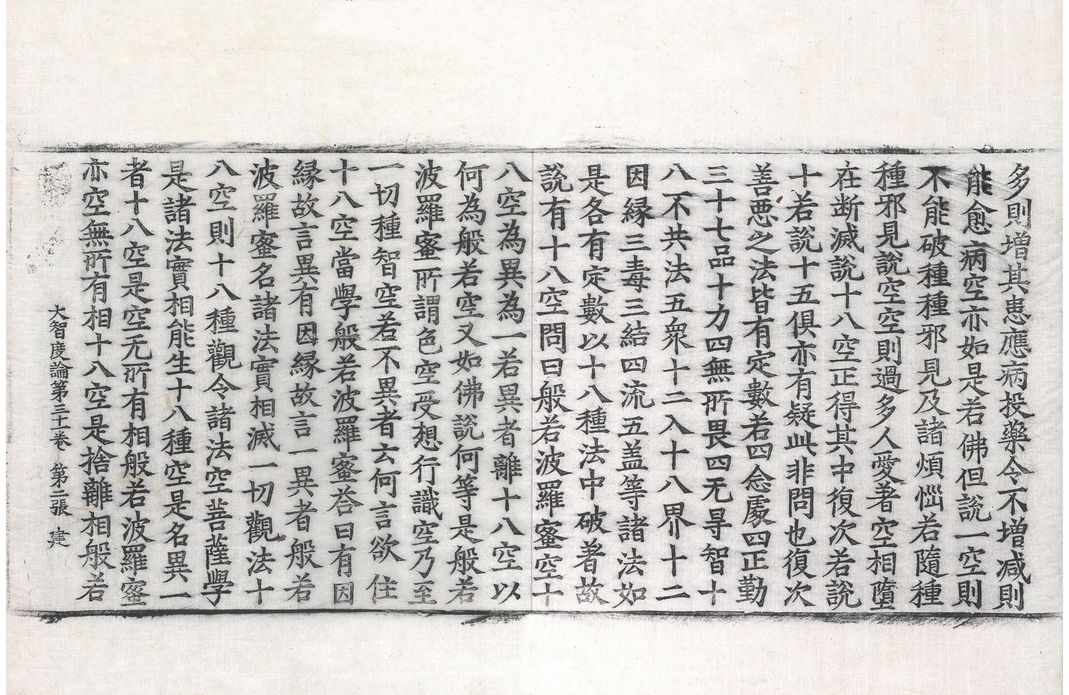 多則增其患應病投藥令不增减則
能愈病空亦如是若佛但說一空則
不能破種種邪見及諸煩惱若隨種
種邪見說空空則過多人愛著空相墮
在斷滅說十八空正得其中復次若說
十若說十五俱亦有疑此非問也復次
善惡之法皆有定數若四念處四正勤
三十七品十力四無所畏四无㝵智十
八不共法五衆十二入十八界十二
因緣三毒三結四流五盖等諸法如
是各有定數以十八種法中破著故
說有十八空問曰般若波羅蜜空十
八空為異為一若異者離十八空以
何為般若空又如佛說何等是般若
波羅蜜所謂色空受想行識空乃至
一切種智空若不異者云何言欲住
十八空當學般若波羅蜜荅曰有因
緣故言異有因緣故言一異者般若
波羅蜜名諸法實相滅一切觀法十
八空則十八種觀令諸法空菩薩學
是諸法實相能生十八種空是名異一
者十八空是空无所有相般若波羅蜜
亦空無所有相十八空是捨離相般若
大智度論第三十卷 第二張 建